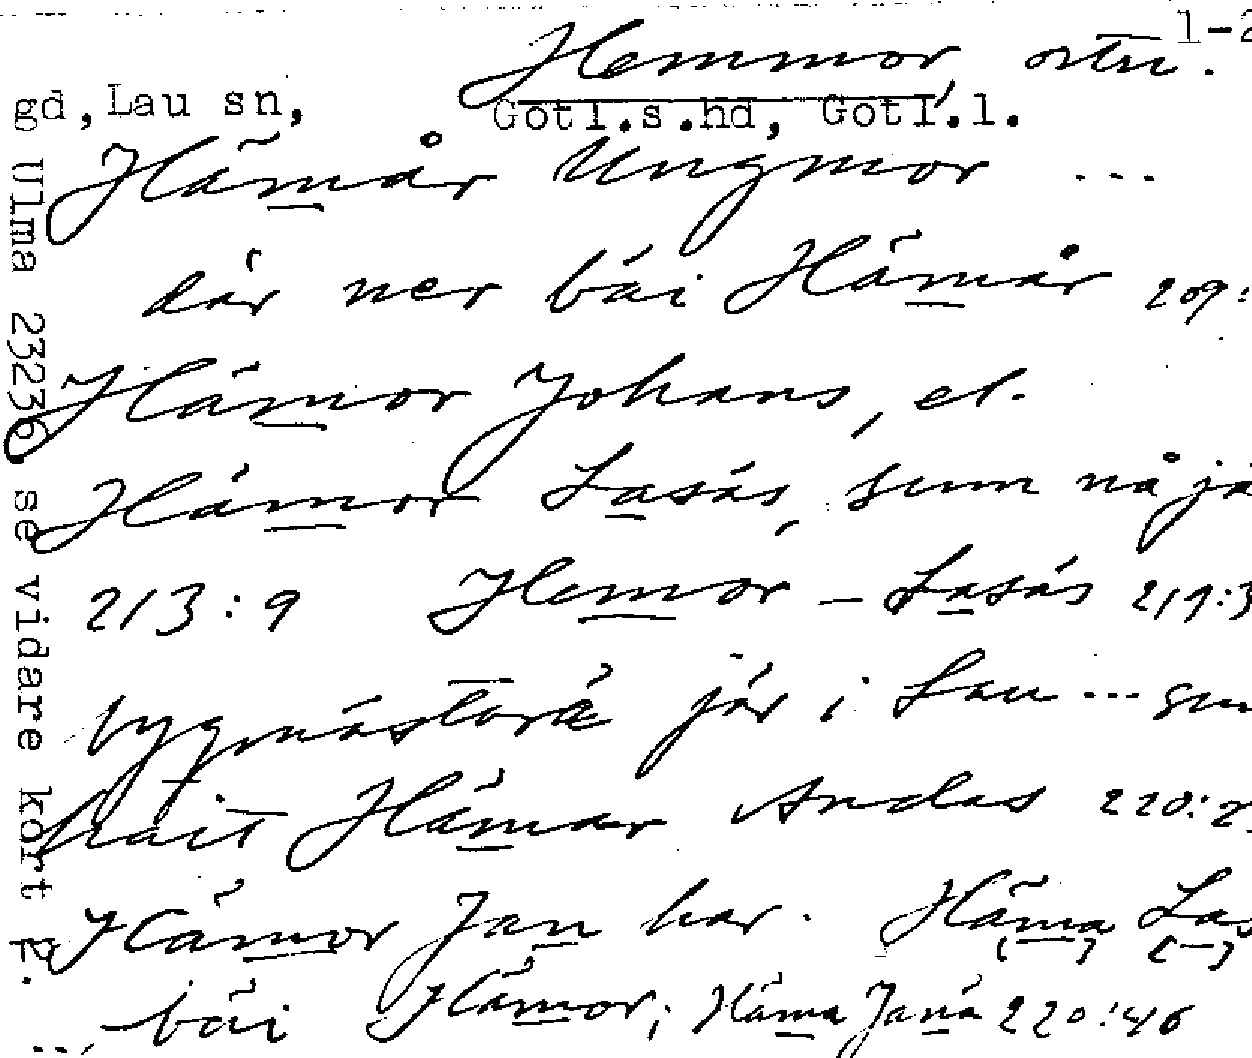 Hemmor, ortn. 1-2
gd, Lau sn, Gotl.s.hd, Gotl.l.
Hämår Ungmor ...
där ner bäi Hämår 209:
Hämor Johans, el.
Hämor Lasás, sum nå jä
213:9 Hemor - Lasás 219:3
jär i Lau ... sum
hait Hämar Andas 220:2
Hämor Jan har. Häma La
..., bäi Hämor; Häma Janá 220:46
Ulma 23236. se vidare kort 2.